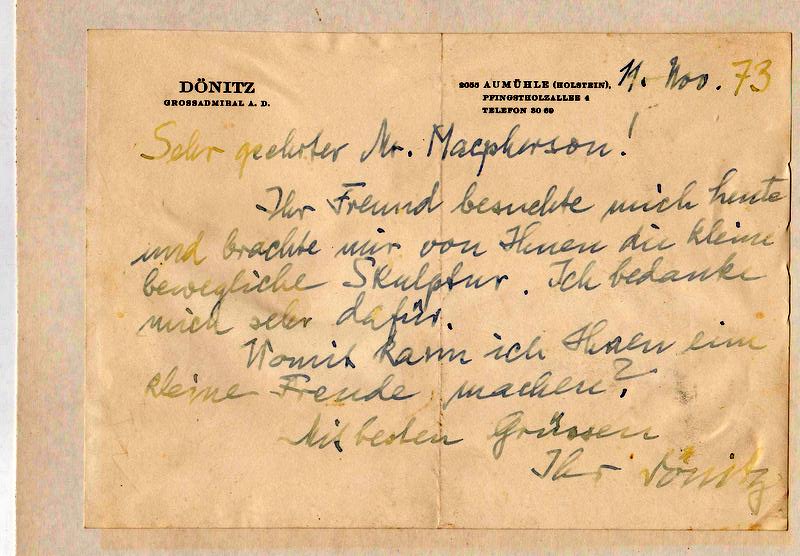 DÖNITZ
GROSSADMIRAL A. D.
2055 AUMÜHLE (HOLSTEIN), 11. Nov. 73
PFINGSTHOLZALLEE 4
TELEFON 30 69
Sehr geehrter Mr. Macpherson!
Ihr Freund besuchte mich heute
und brachte mir von Ihnen die kleine
bewegliche Skulptur. Ich bedanke
mich sehr dafür.
Womit kann ich Ihnen eine
kleine Freude machen?
Mit besten Grüssen
Ihr Dönitz